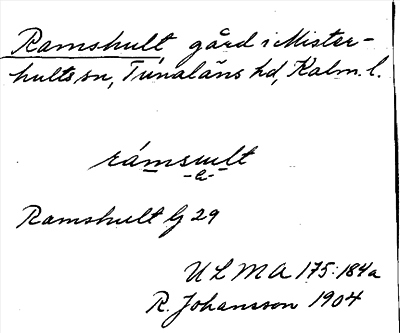 Ramshult gård i Mister-
hults sn, Tunaläns hd, Kalm. l.
Ramshult Lj 29
ULMA 175:184a
R. Johansson 1904